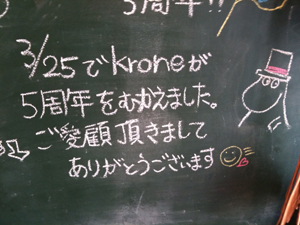 5周年!!
3/25でkroneが
5周年をむかえました。
ご愛顧頂きまして
ありがとうございます